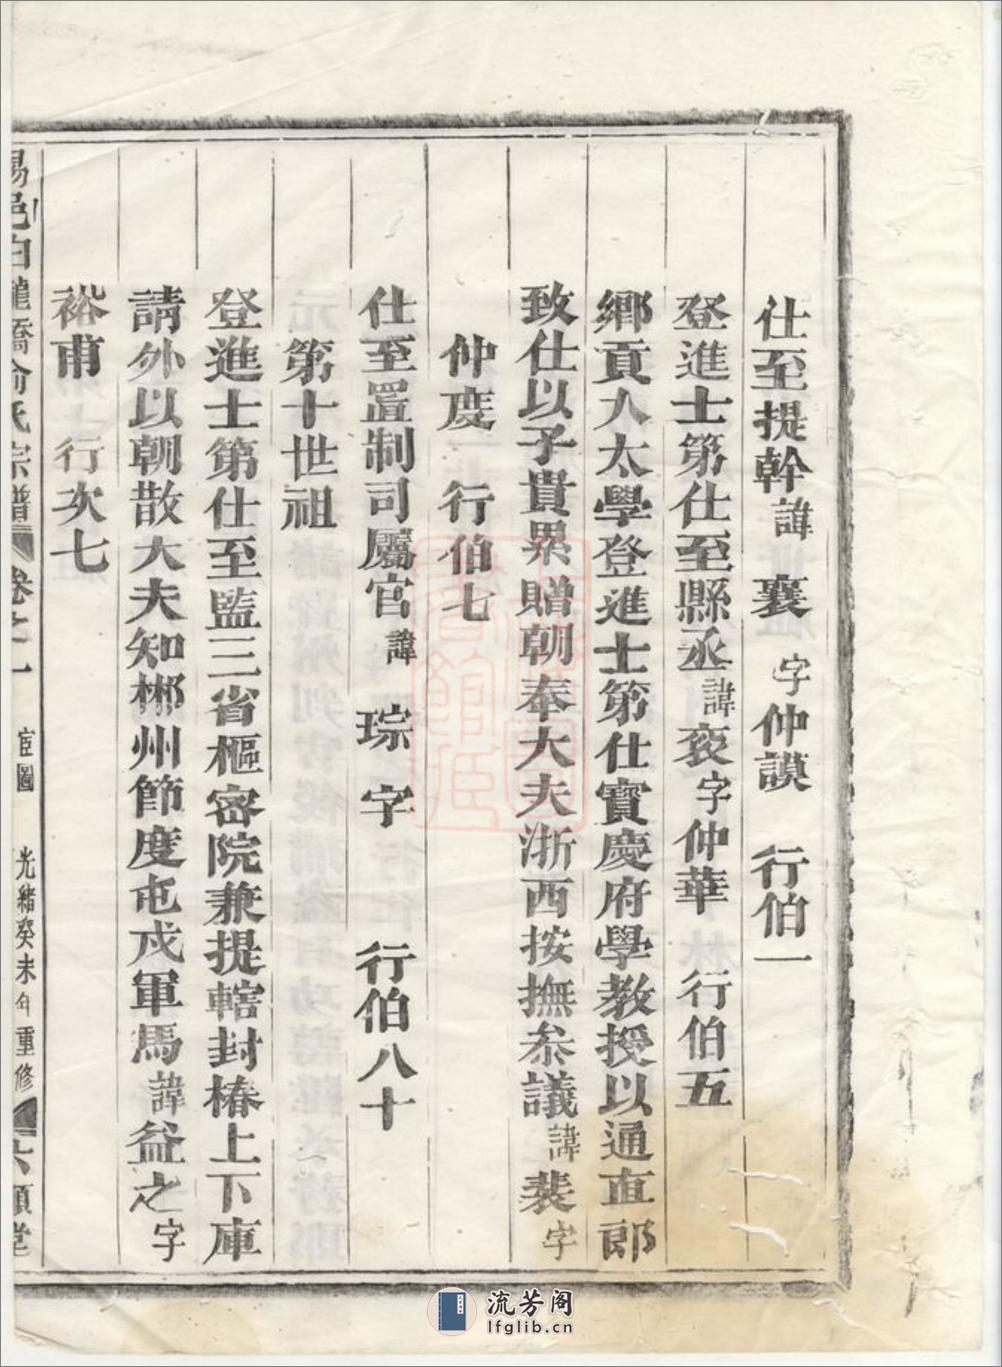 仕至提幹諱 襄 字仲謨 行伯一
登進士第仕至縣丞諱衮字仲華 行伯五
鄉貢入太學登進士第仕寶慶府學教授以通直郎
致仕以子貴累贈朝奉大夫浙西按撫叅議諱裴字
仲度 行伯七
仕至置制司屬官諱 琮 字 行伯八十
第十世祖
登進士第仕至監三省樞密院兼提轄封樁上下庫
請外以朝散大夫知郴州節度屯戍軍馬諱益之字
裕甫 行次七
暘邑白龍橋俞氏宗譜 卷之一 宦圖 光緒癸未年重修 六順堂
流芳阁
lfglib.cn